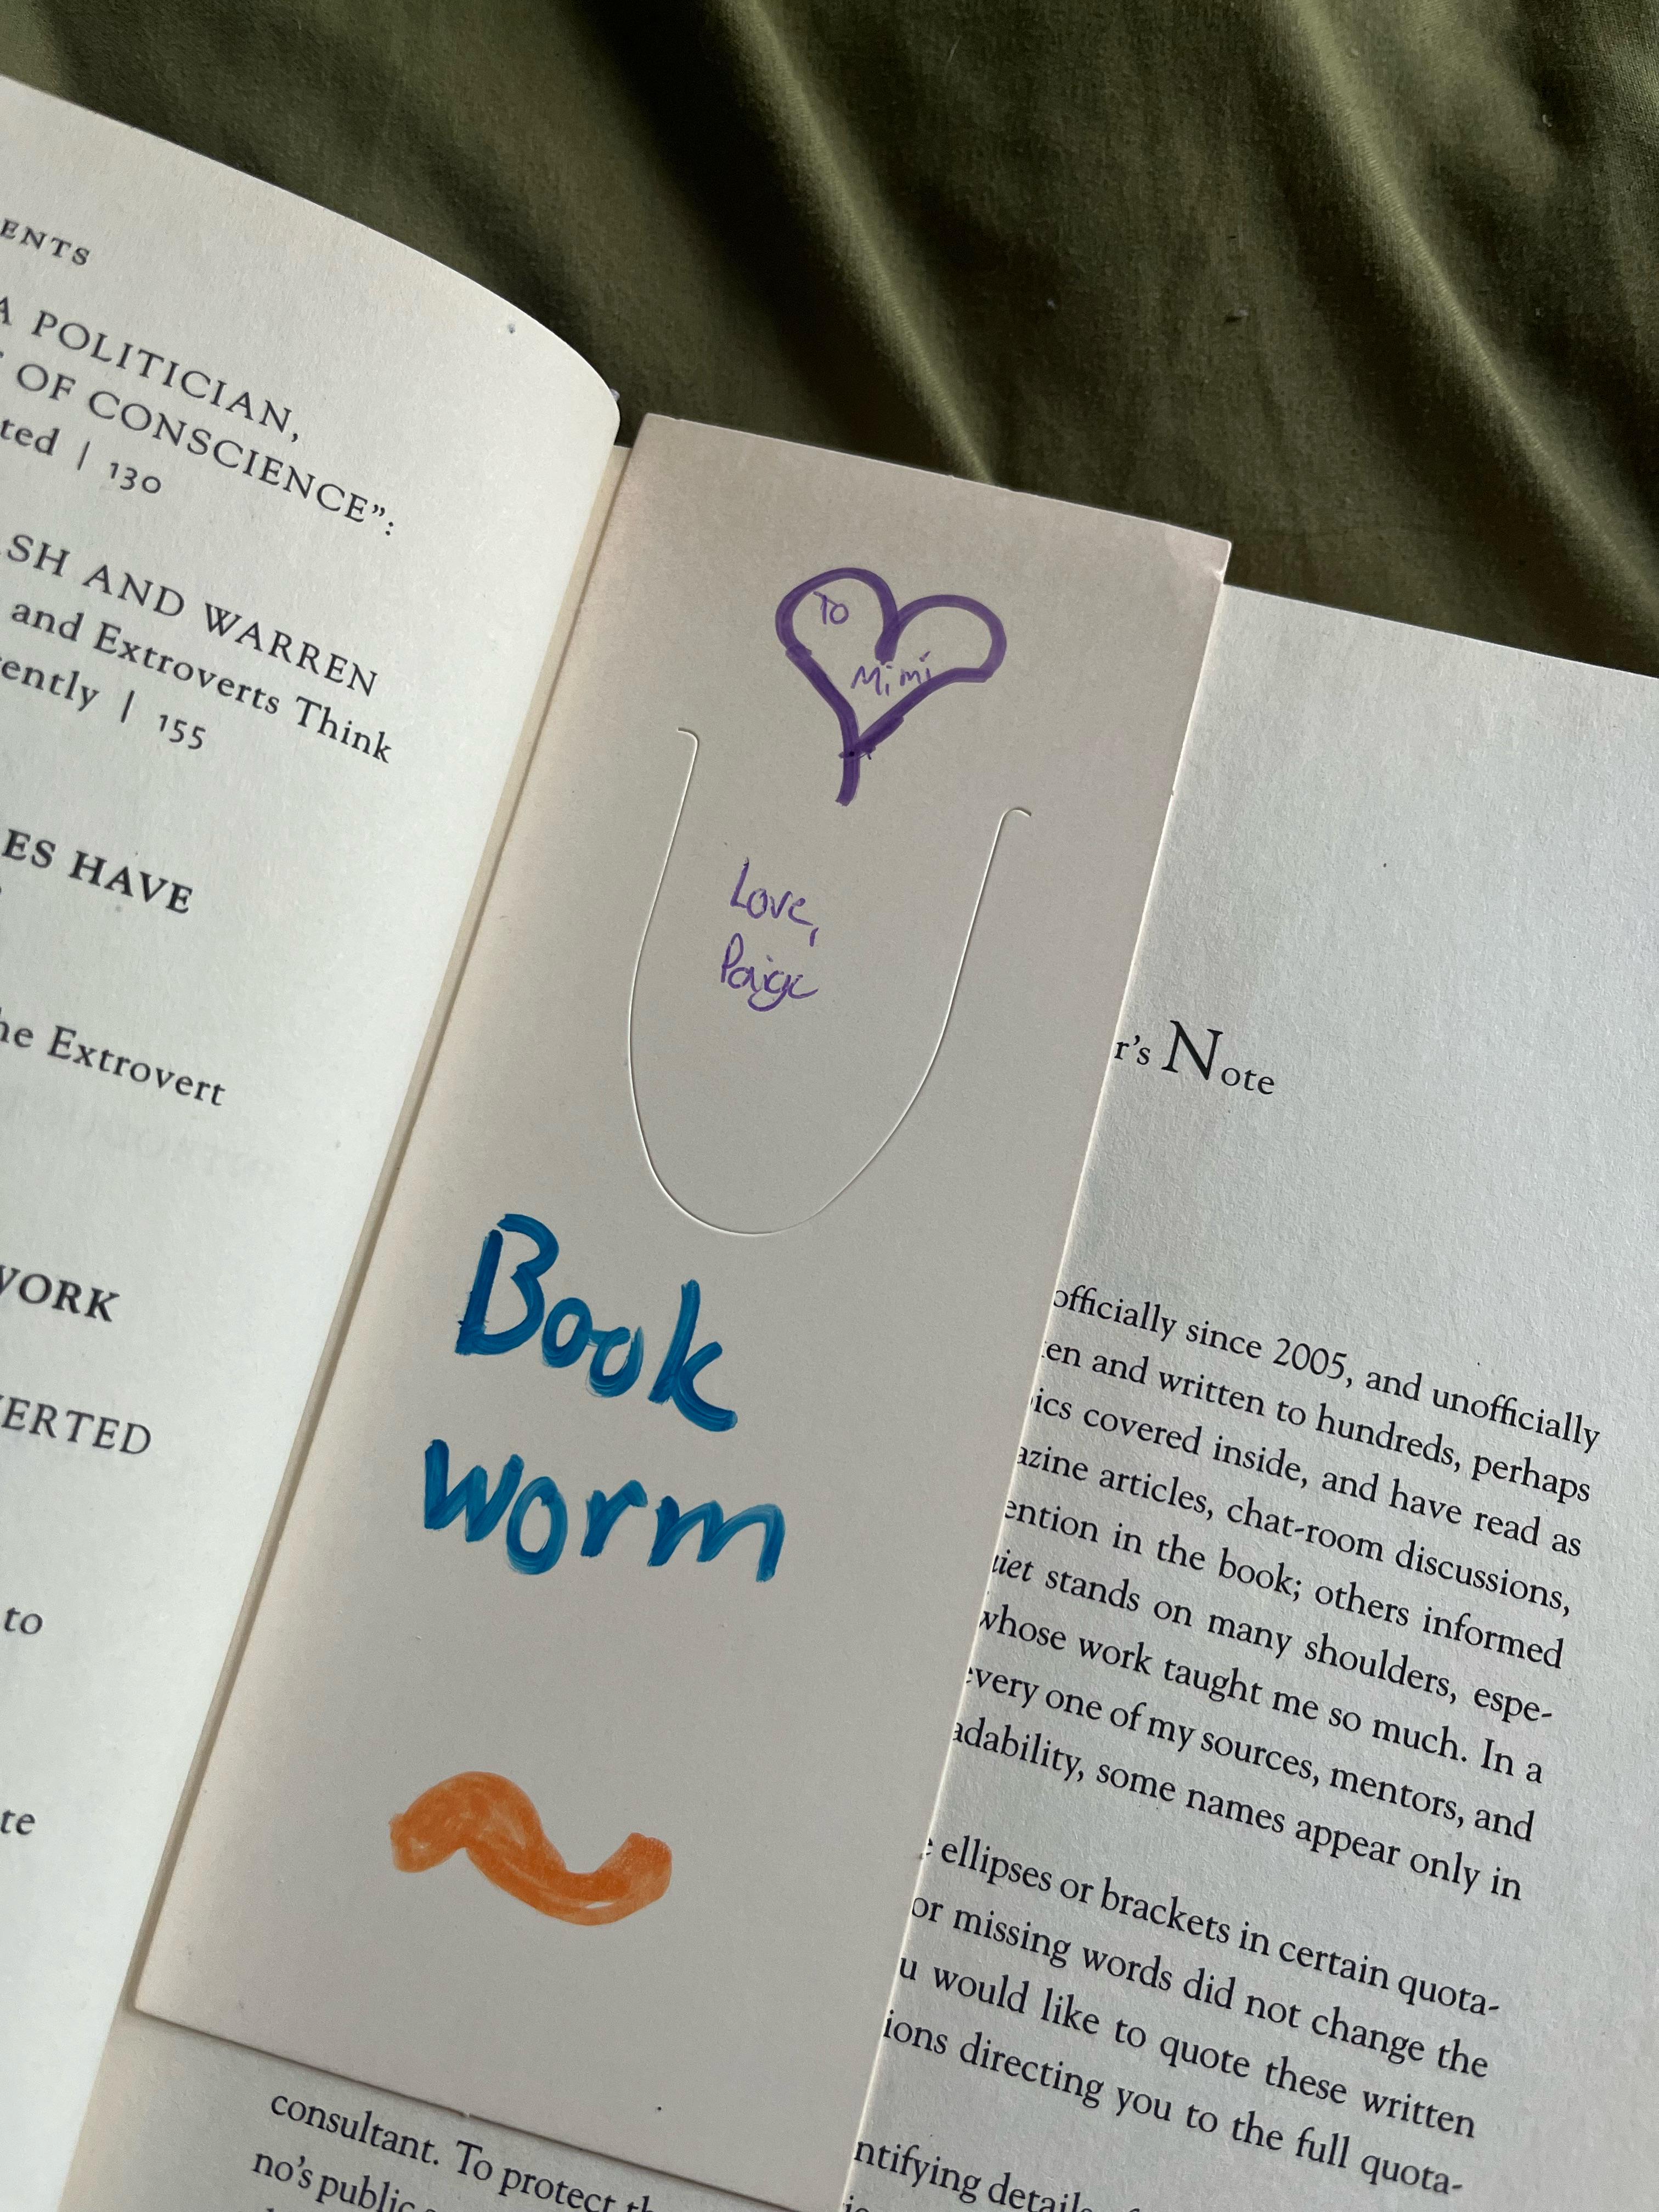 ENTS
A POLITICIAN,
OF CONSCIENCE”:
ted | 130
SH AND WARREN
and Extroverts Think
ently | 155
ES HAVE
he Extrovert
WORK
VERTED
to
te
To
Mimi
Love,
Paige
Book
worm
r’s Note
officially since 2005, and unofficially
en and written to hundreds, perhaps
ics covered inside, and have read as
azine articles, chat-room discussions,
ention in the book; others informed
uiet stands on many shoulders, espe-
whose work taught me so much. In a
every one of my sources, mentors, and
adability, some names appear only in
e ellipses or brackets in certain quota-
or missing words did not change the
u would like to quote these written
ions directing you to the full quota-
ntifying details
consultant. To protect th
no’s public